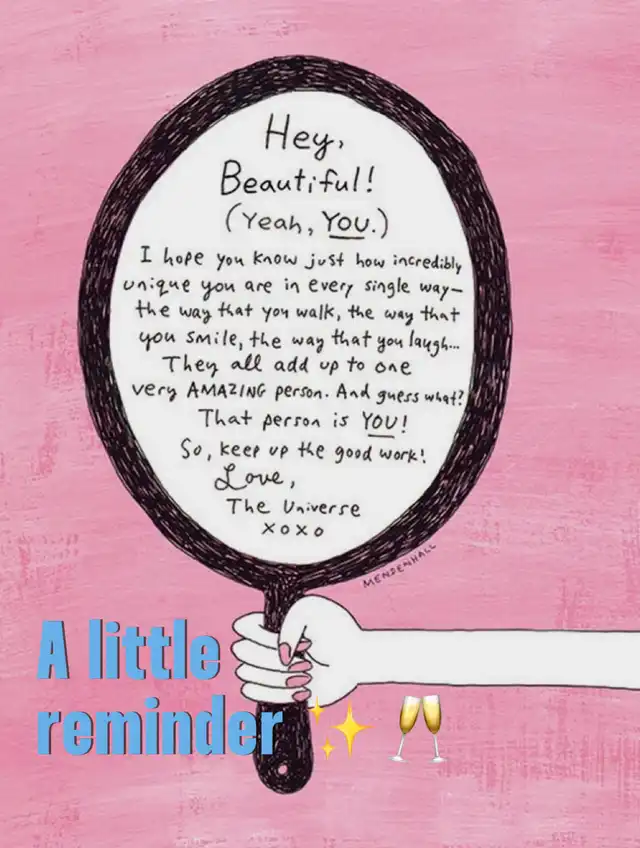 Hey,
Beautiful!
(Yeah, YOU.)
I hope you know just how incredibly
unique you are in every single way—
the way that you walk, the way that
you smile, the way that you laugh...
They all add up to one
very AMAZING person. And guess what?
That person is YOU!
So, keep up the good work!
Love,
The Universe
xoxo
MENDENHALL
A little
reminder ✨ 🥂